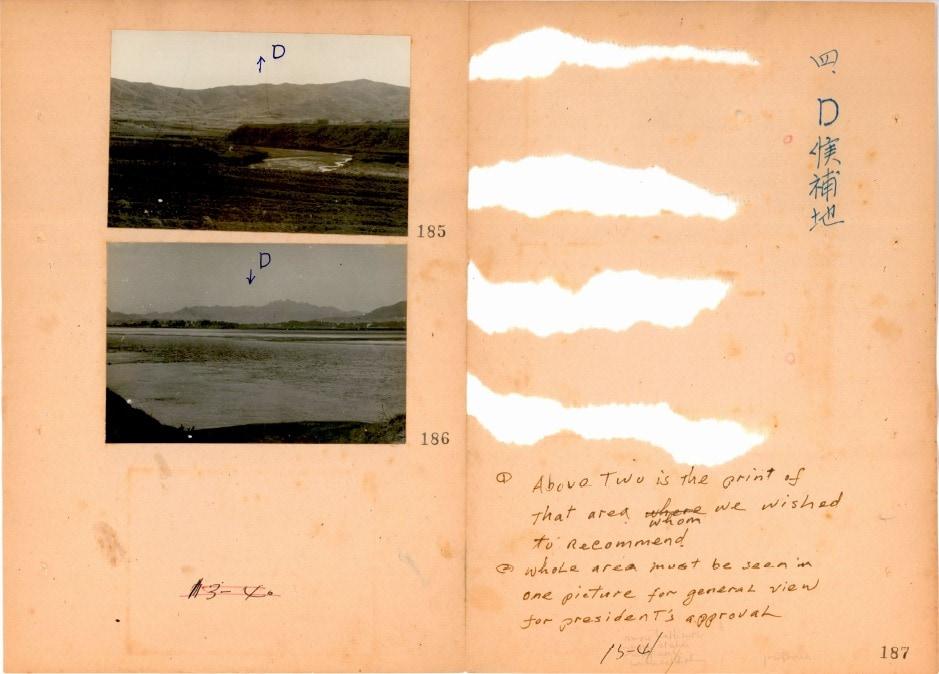 D
185
D
186
四、D候補地
① Above Two is the print of
that area where whom we wished
to Recommend
② whole area must be seen in
one picture for general view
for president's approval
15-41
187